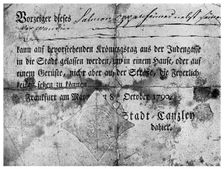 Vorzeiger dieses Salomon
kann auf bevorstehenden Krönungstag aus der Judengasse
in die Stadt gelassen werden, um in einem Hause, oder auf
einem Gerüste, nicht aber auf der Straße, die Feyerlich-
keit sehen zu können.
Frankfurt am Mayn den 8 October 1790.
Stadt-Canzley
dahier.